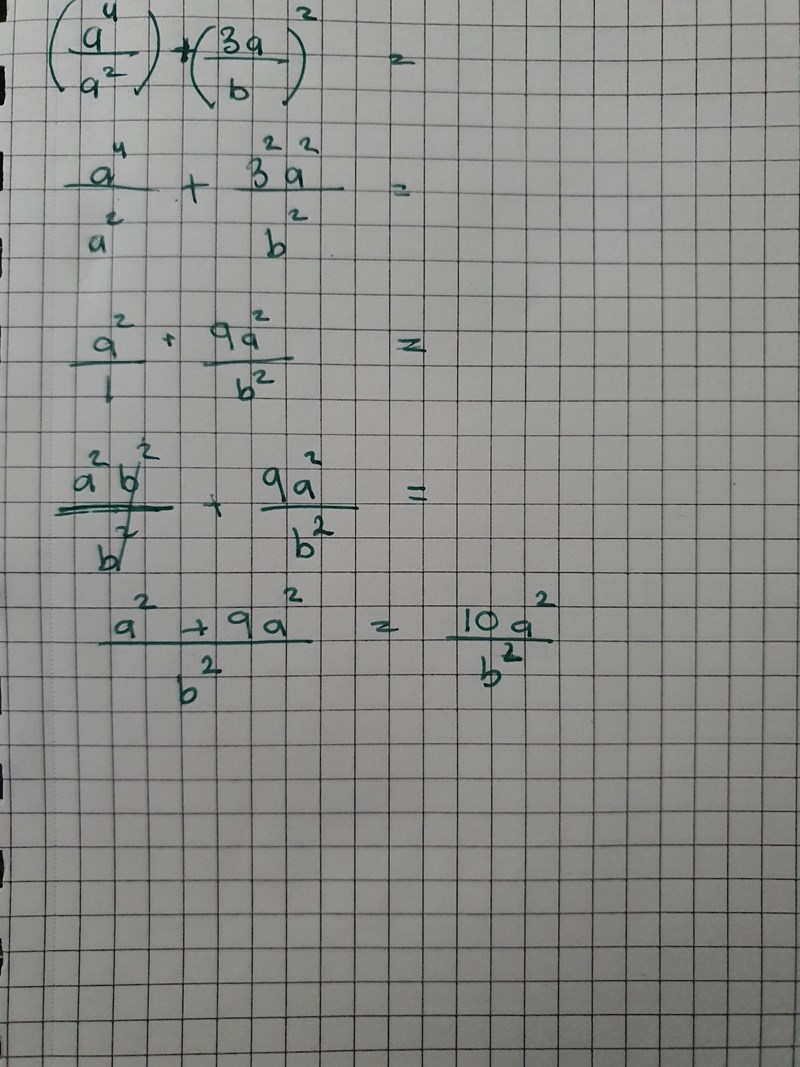 (a⁴/a²) + (3a/b)² =
a⁴/a² + 3²a²/b² =
a²/1 + 9a²/b² =
a²b²/b² + 9a²/b² =
a² + 9a²/b² = 10a²/b²